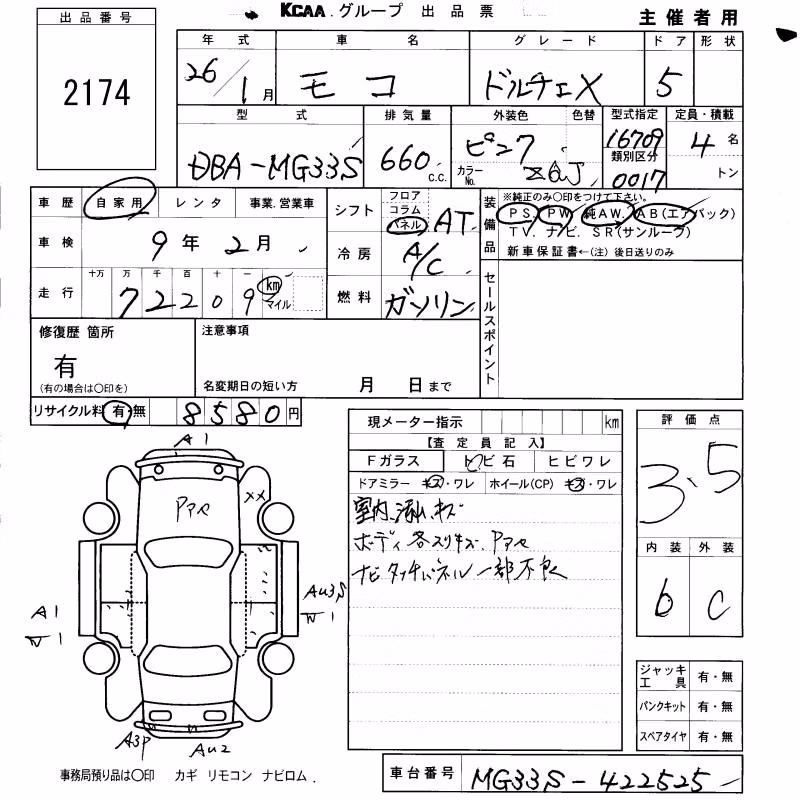 KCAA.グループ 出品票
主催者用
出品番号
2174
年式 車名 グレード ドア 形状
26/1月 モコ ドルチェX 5
型式 排気量 外装色 色替 型式指定 定員・積載
DBA-MG33S 660 c.c. ピンク カラーNo. ZGJ 16709 類別区分 0017 4名 トン
車歴 自家用 レンタ 事業.営業車
車検 9年2月
十万 万 千 百 十 一
走行 72209 km マイル
シフト フロア コラム パネル AT
冷房 A/C
燃料 ガソリン
装備品 ※純正のみ○印をつけて下さい。
PS. PW. 純AW. AB(エアバック)
TV. ナビ. SR(サンルーフ)
新車保証書←(注) 後日送りのみ
セールスポイント
修復歴 箇所
有
(有の場合は○印を)
注意事項
名変期日の短い方 月 日まで
リサイクル料 有・無 8580円
現メーター指示 km
【査定員記入】
Fガラス トビ石 ヒビワレ
ドアミラー キズ・ワレ ホイール(CP) キズ・ワレ
室内 汚れ.キズ
ボディ各スリキズ. Pアセ
ナビタッチパネル一部不良
評価点
3.5
内装 外装
b C
ジャッキ工具 有・無
パンクキット 有・無
スペアタイヤ 有・無
A1
Pアセ
××
A1
W1
AU3S
W1
A3P
AU2
事務局預り品は○印 カギ リモコン ナビロム.
車台番号 MG33S-422525